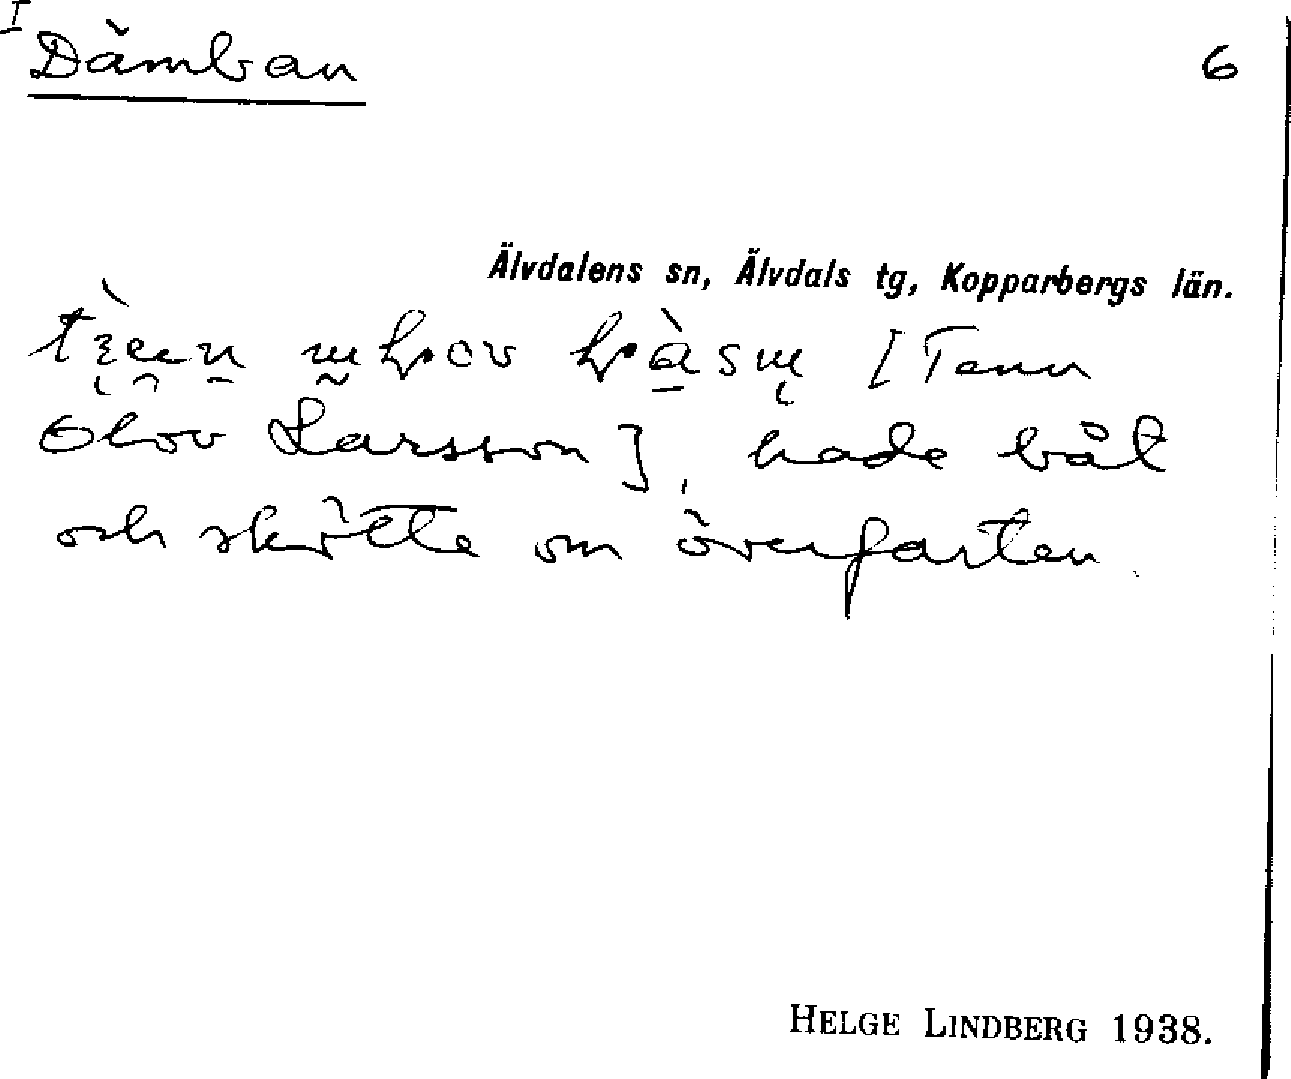 I
Dämban 6
Älvdalens sn, Älvdals tg, Kopparbergs län.
[Tenn
Olov Larsson], hade båt
och skötte om överfarten.
HELGE LINDBERG 1938.